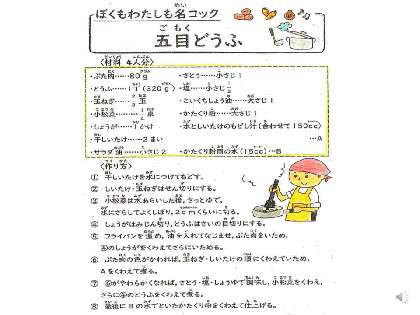 ぼくもわたしも名コック
五目どうふ
〈材料 4人分〉
・ぶた肉……80g
・さとう……小さじ1
・とうふ……1丁(320g)
・塩……小さじ
・玉ねぎ……玉
・こいくちしょうゆ……大さじ1
・小松菜……束
・かたくり粉……大さじ
・しょうが……1かけ
・水としいたけのもどし汁(合わせて150cc)
・干しいたけ……2まい
…A
・サラダ油……小さじ2
・かたくり粉用の水(15cc)…B
〈作り方〉
① 干しいたけを水につけてもどす。
② しいたけ・玉ねぎはせん切りにする。
③ 小松菜は水あらいした後、さっとゆで、
水にさらしてよくしぼり、2cmくらいに切る。
④ しょうがはみじん切り、とうふはさいの目切りにする。
⑤ フライパンを温め、油を入れてなじませ、ぶた肉をいため、
④のしょうがをくわえてさらにいためる。
⑥ ぶた肉の色がかわれば、玉ねぎ・しいたけの順にくわえていため、
Aをくわえて煮る。
⑦ ⑥がやわらかくなれば、さとう・塩・しょうゆで調味し、小松菜をくわえ、
さらに④のとうふをくわえて煮る。
⑧ 最後にBの水でといたかたくり粉をくわえて仕上げる。